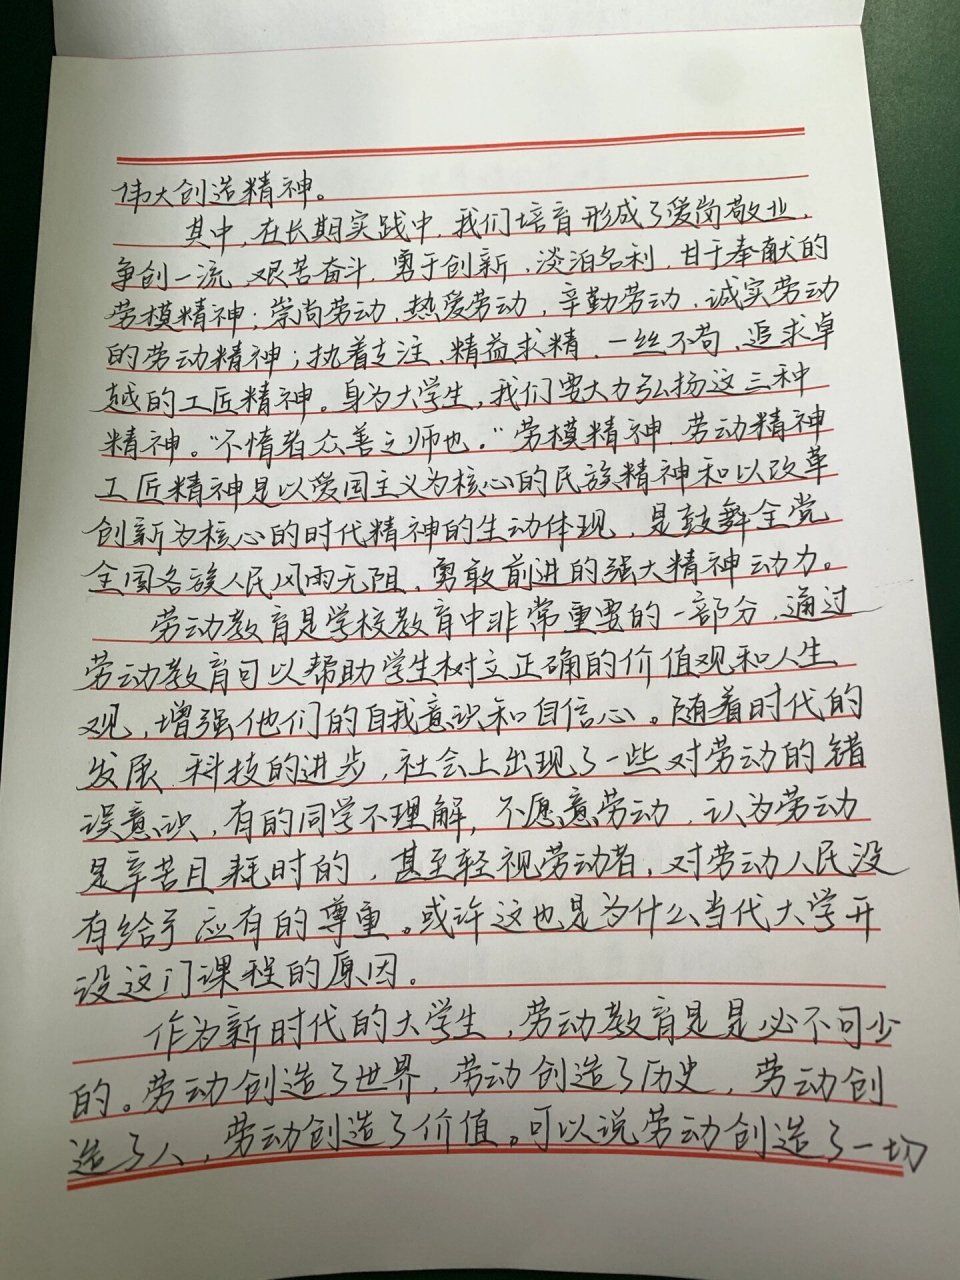 伟大创造精神。
其中,在长期实践中,我们培育形成了爱岗敬业、
争创一流、艰苦奋斗、勇于创新、淡泊名利、甘于奉献的
劳模精神;崇尚劳动、热爱劳动、辛勤劳动、诚实劳动
的劳动精神;执着专注、精益求精、一丝不苟、追求卓
越的工匠精神。身为大学生,我们要大力弘扬这三种
精神。“不惰者众善之师也。”劳模精神、劳动精神
工匠精神是以爱国主义为核心的民族精神和以改革
创新为核心的时代精神的生动体现,是鼓舞全党
全国各族人民风雨无阻、勇敢前进的强大精神动力。
劳动教育是学校教育中非常重要的一部分,通过
劳动教育可以帮助学生树立正确的价值观和人生
观,增强他们的自我意识和自信心。随着时代的
发展、科技的进步,社会上出现了一些对劳动的错
误意识,有的同学不理解,不愿意劳动,认为劳动
是辛苦且耗时的,甚至轻视劳动者,对劳动人民没
有给予应有的尊重。或许这也是为什么当代大学开
设这门课程的原因。
作为新时代的大学生,劳动教育是是必不可少
的。劳动创造了世界,劳动创造了历史,劳动创
造了人,劳动创造了价值。可以说劳动创造了一切